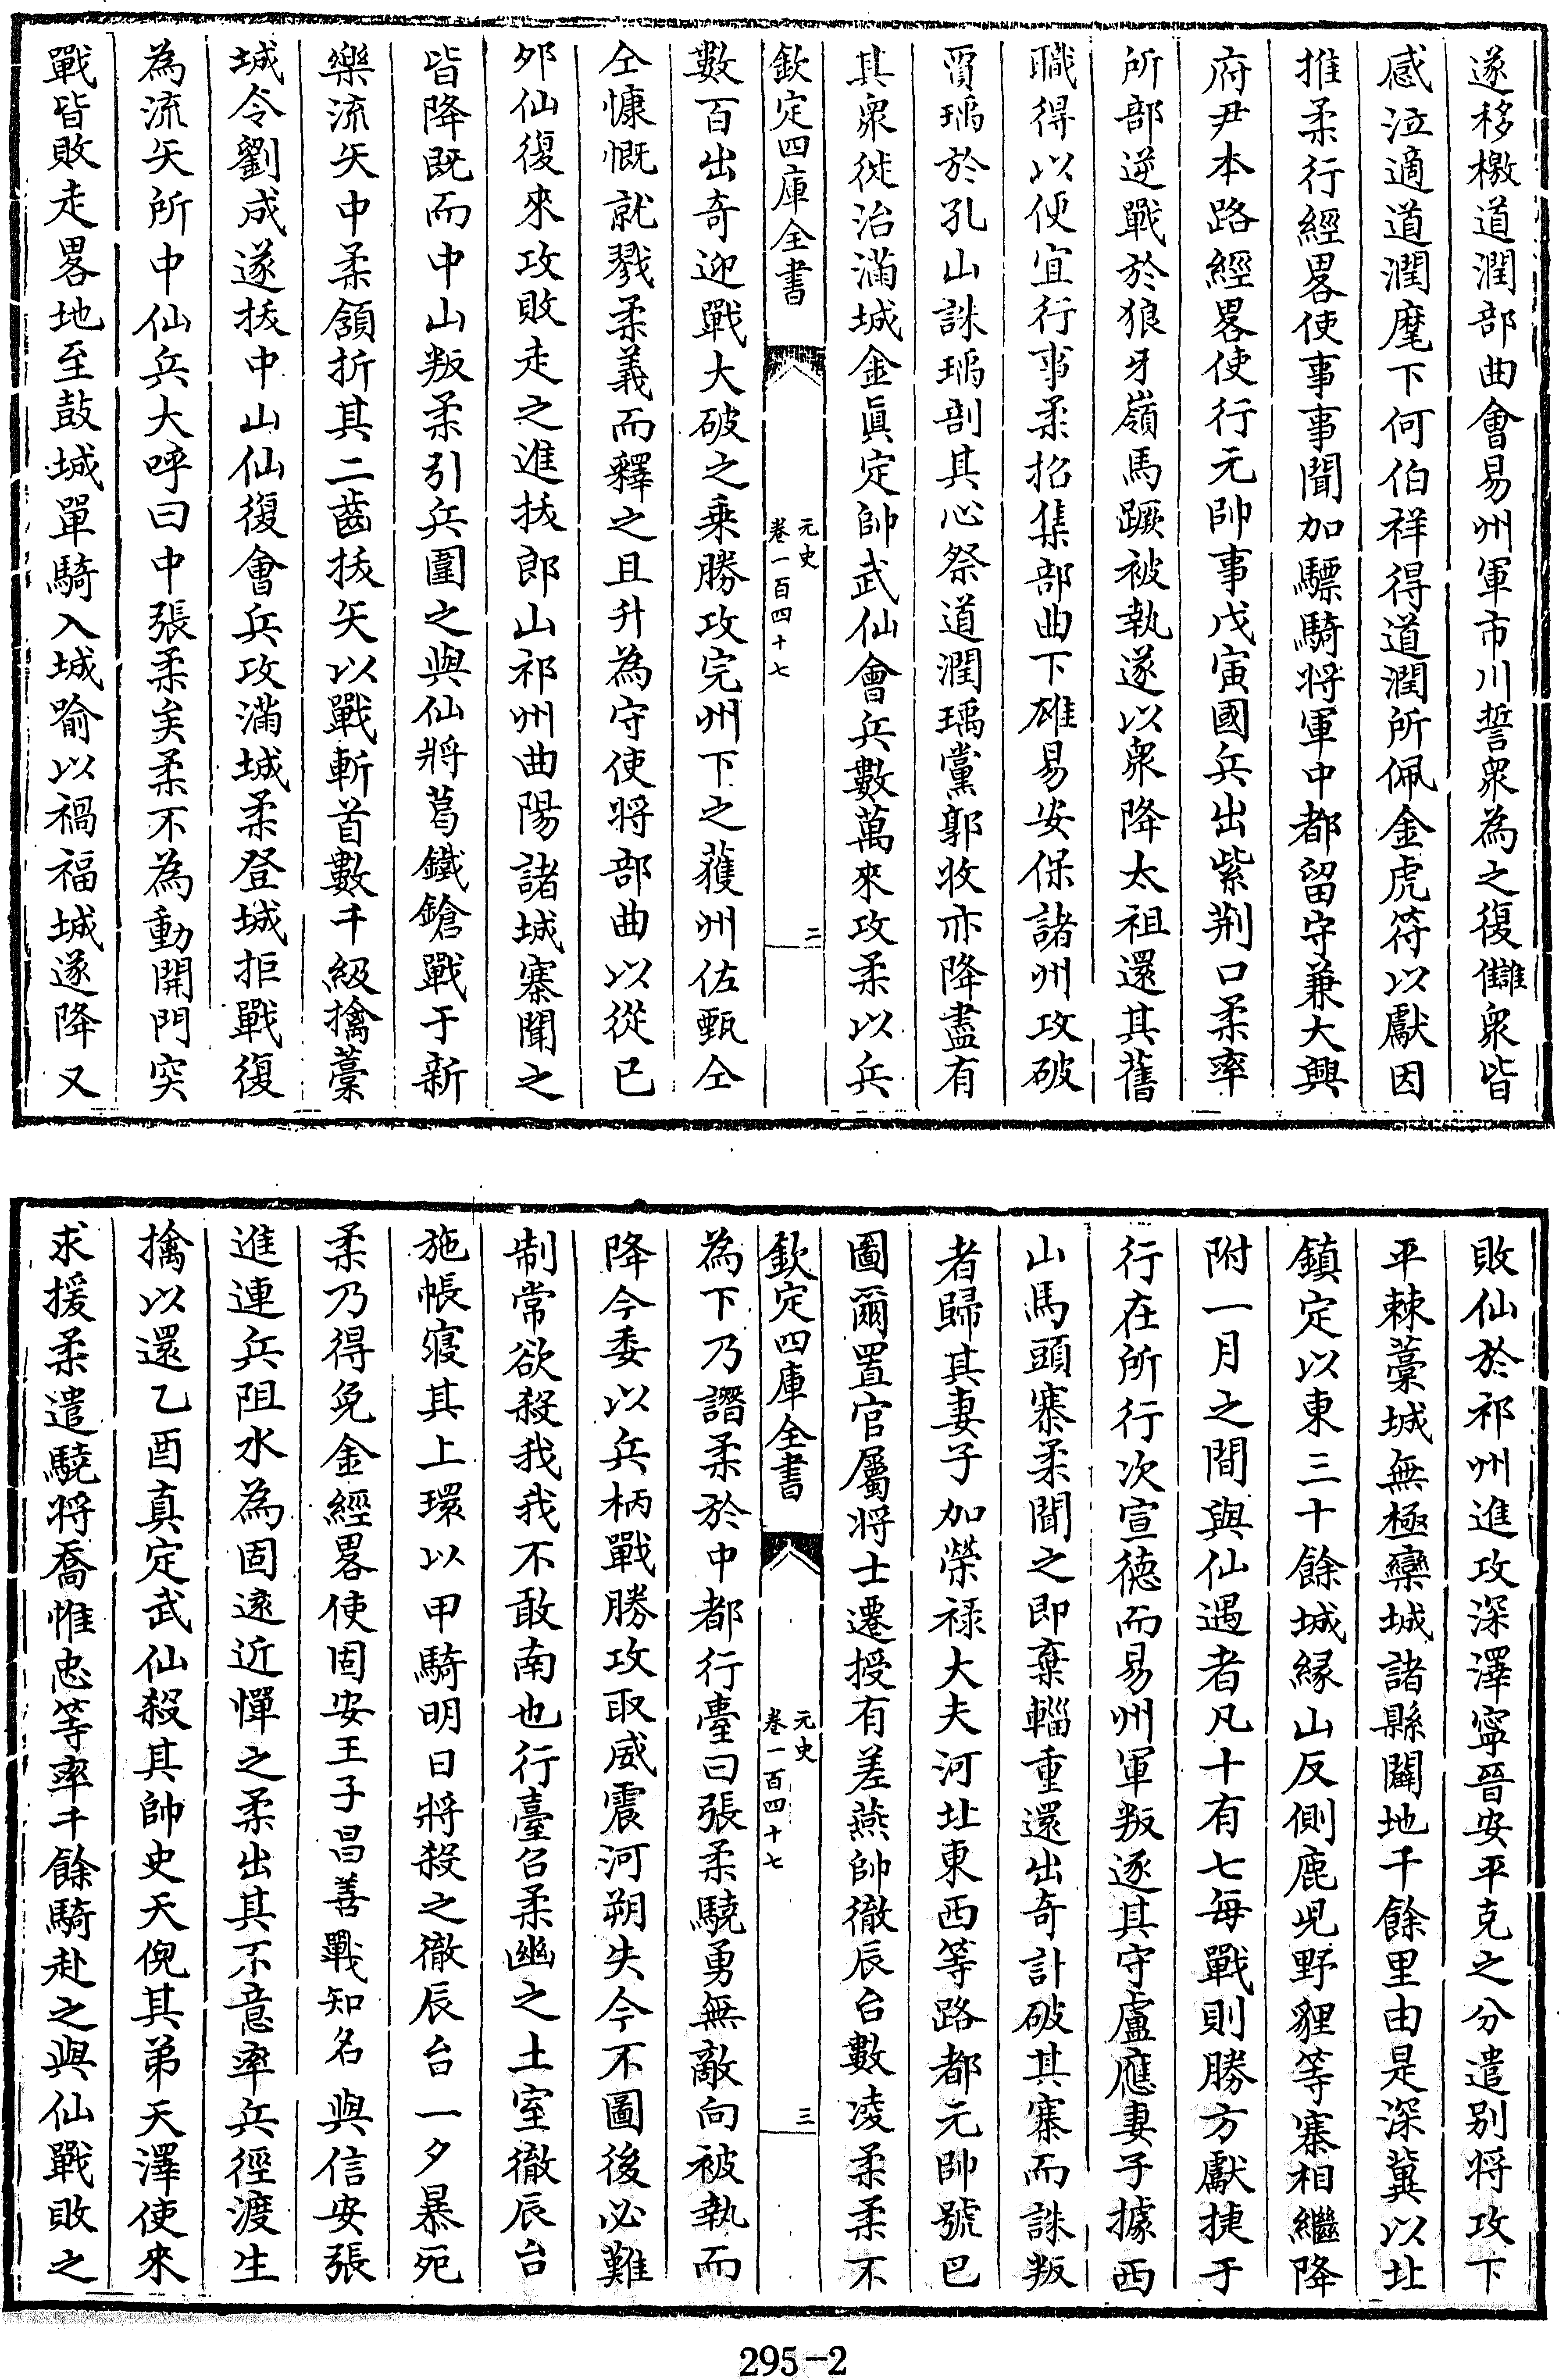 遂移檄道潤部曲會易州軍市川誓衆為之復讎衆皆
感泣適道潤麾下何伯祥得道潤所佩金虎符以獻因
推柔行經畧使事事聞加驃騎將軍中都留守兼大興
府尹本路經畧使行元帥事戊寅國兵出紫荆口柔率
所部逆戰於狼牙嶺馬蹶被執遂以衆降太祖還其舊
職得以便宜行事柔招集部曲下雄易安保諸州攻破
賈瑀於孔山誅瑀剖其心祭道潤瑀黨郭收亦降盡有
其衆徙治滿城金眞定帥武仙會兵數萬來攻柔以兵
欽定四庫全書
元史
卷一百四十七
二
數百出奇迎戰大破之乗勝攻完州下之獲州佐甄仝
仝慷慨就戮柔義而釋之且升為守使將部曲以從已
夘仙復來攻敗走之進拔郎山祁州曲陽諸城寨聞之
皆降既而中山叛柔引兵圍之與仙將葛鐵鎗戰于新
樂流矢中柔頷折其二齒拔矢以戰斬首數千級擒藁
城令劉成遂拔中山仙復會兵攻滿城柔登城拒戰復
為流矢所中仙兵大呼曰中張柔矣柔不為動開門突
戰皆敗走畧地至鼓城單騎入城喻以禍福城遂降又
敗仙於祁州進攻深澤寧晉安平克之分遣别將攻下
平棘藁城無極欒城諸縣闢地千餘里由是深冀以北
鎮定以東三十餘城緣山反側鹿兒野貍等寨相繼降
附一月之間與仙遇者凡十有七每戰則勝方獻捷于
行在所行次宣徳而易州軍叛逐其守盧應妻子據西
山馬頭寨柔聞之即棄輜重還出奇計破其寨而誅叛
者歸其妻子加榮祿大夫河北東西等路都元帥號巴
圖爾置官屬將士遷授有差燕帥徹辰台數凌柔柔不
欽定四庫全書
元史
卷一百四十七
三
為下乃譖柔於中都行臺曰張柔驍勇無敵向被執而
降今委以兵柄戰勝攻取威震河朔失今不圖後必難
制常欲殺我我不敢南也行臺召柔幽之土室徹辰台
施帳寢其上環以甲騎明日將殺之徹辰台一夕暴死
柔乃得免金經畧使固安王子昌善戰知名與信安張
進連兵阻水為固逺近憚之柔出其不意率兵徑渡生
擒以還乙酉真定武仙殺其帥史天倪其弟天澤使來
求援柔遣驍將喬惟忠等率千餘騎赴之與仙戰敗之
295-2